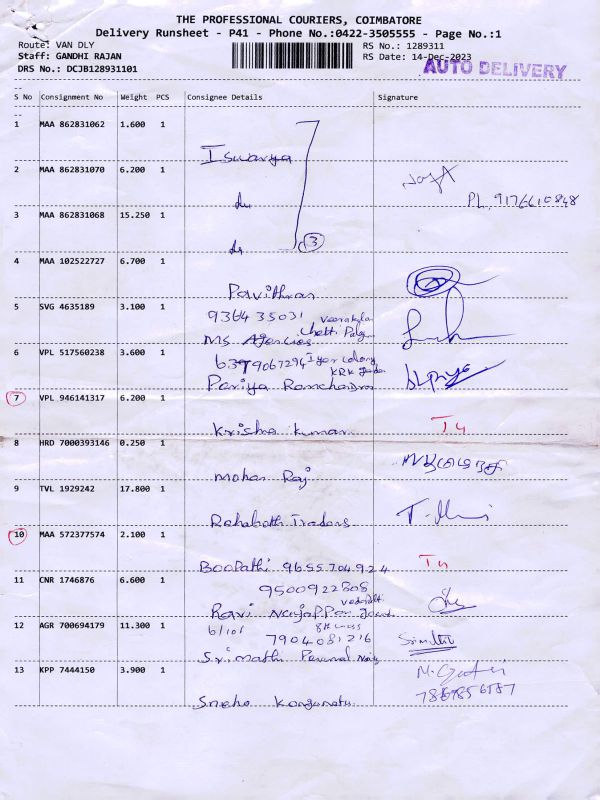 THE PROFESSIONAL COURIERS, COIMBATORE
Delivery Runsheet - P41 - Phone No.:0422-3505555 - Page No.:1
Route: VAN DLY RS No.: 1289311
Staff: GANDHI RAJAN RS Date: 14-Dec-2023
DRS No.: DCJB128931101 AUTO DELIVERY
S No Consignment No Weight PCS Consignee Details Signature
1 MAA 862831062 1.600 1
Iswarya
2 MAA 862831070 6.200 1
du PL. 9176610848
3 MAA 862831068 15.250 1
du 3
4 MAA 102522727 6.700 1
Pavithran
5 SVG 4635189 3.100 1
936435031
Ms Agencies
6 VPL 517560238 3.600 1
6379067294 Iyer colony
Pariya Ramchadra
7 VPL 946141317 6.200 1
Krishna Kumar
8 HRD 7000393146 0.250 1
Mohan Raj
9 TVL 1929242 17.800 1
Rehaboth Traders
10 MAA 572377574 2.100 1
Boopathi 9655704924
11 CNR 1746876 6.600 1
9500922808
Ravi
12 AGR 700694179 11.300 1
6/101 8th cross
7904081216
Srimathi Perumal
13 KPP 7444150 3.900 1
Sneha Kongunatu